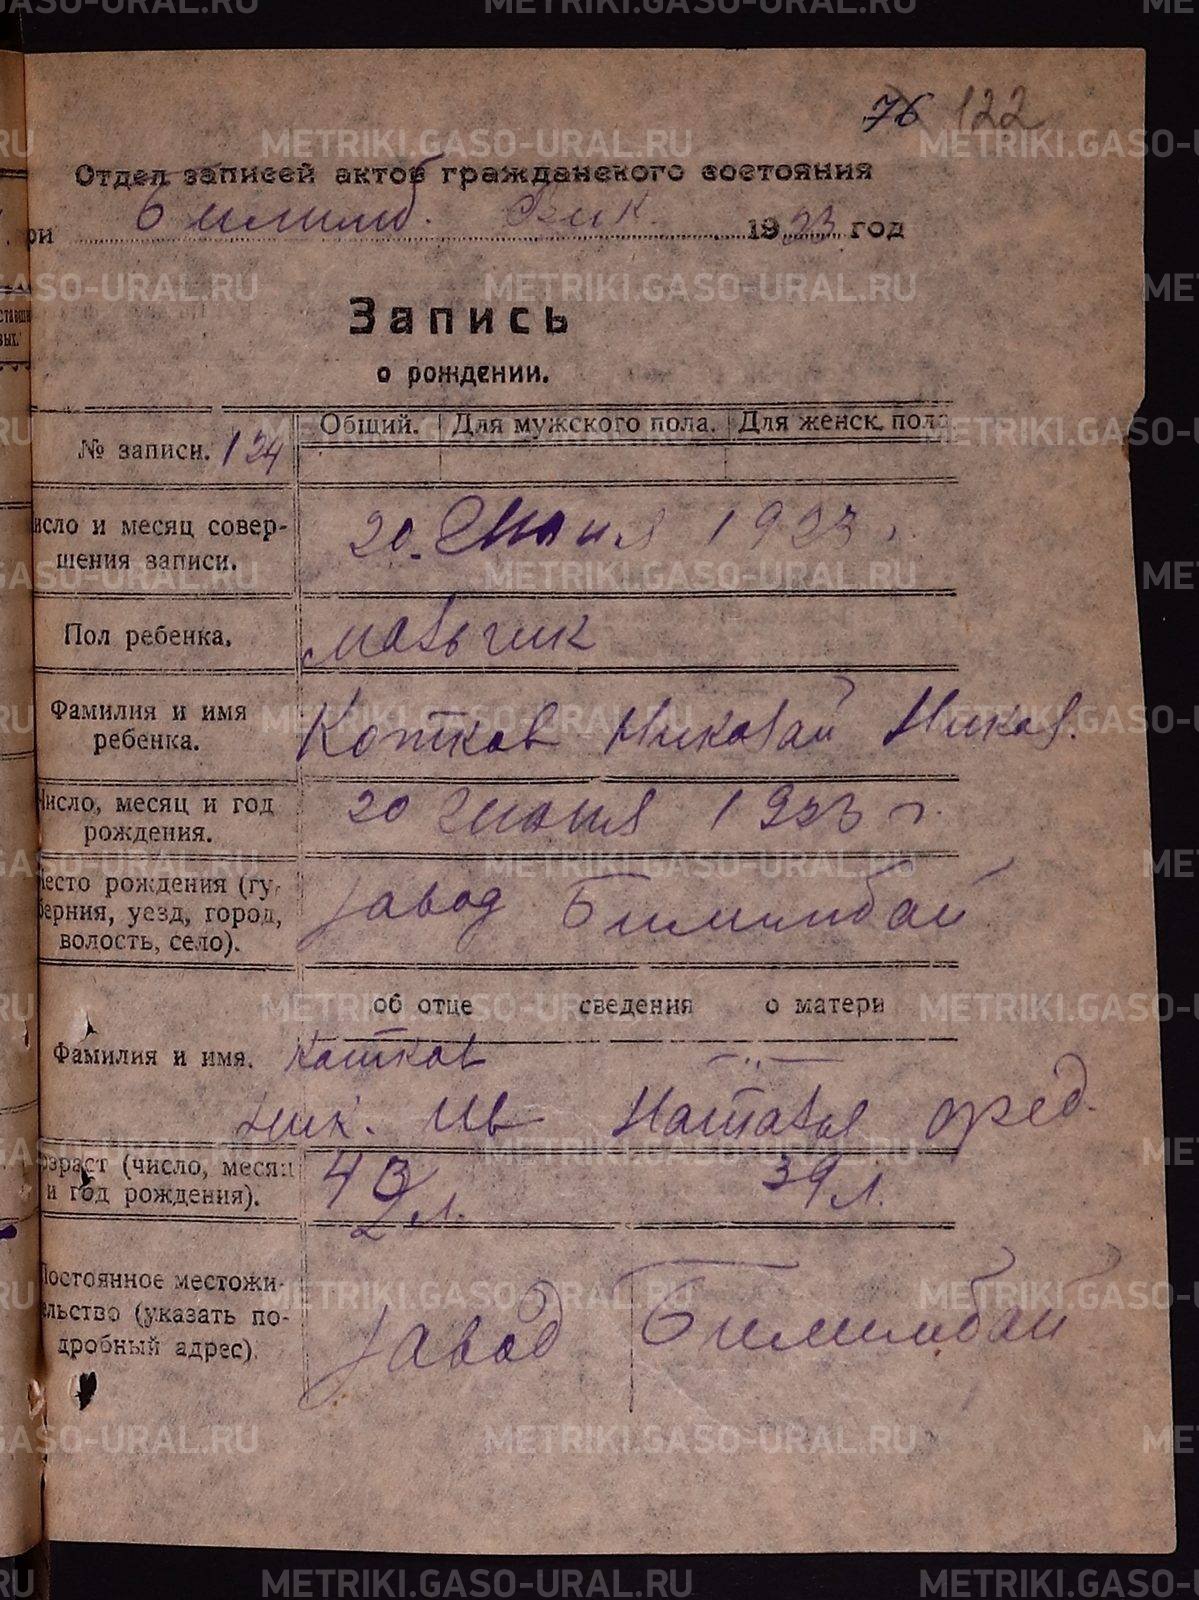 76 122
Отдел записей актов гражданского состояния
ри Билимб. Вик. 1923 год
Запись
о рождении.
№ записи. 124
Общий. Для мужского пола. Для женск. пола
исло и месяц совер-
шения записи.
20. Июня 1923 г.
Пол ребенка.
мальчик
Фамилия и имя
ребенка.
Котков Николай Никол.
Число, месяц и год
рождения.
20 Июня 1923 г.
есто рождения (гу-
берния, уезд, город,
волость, село).
завод Билимбай
об отце сведения о матери
Фамилия и имя. Котков — " —
Ник. Ив Наталья Фед.
озраст (число, месяц
и год рождения).
43 л. 39 л.
Постоянное местожи-
ельство (указать по-
дробный адрес).
завод Билимбай
METRIKI.GASO-URAL.RU